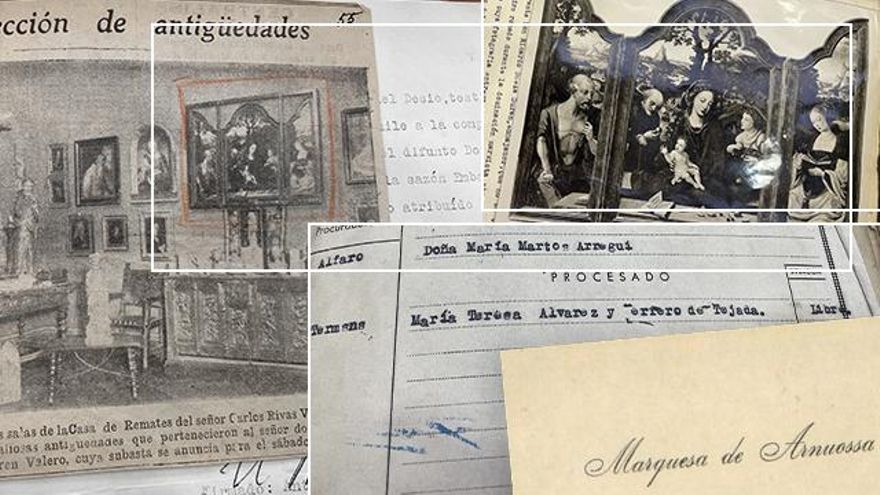 ección de antigüedades
55
s salas de la Casa de Remates del señor Carlos Rivas V
aliosas antigüedades que pertenecieron al señor do
ren Valero, cuya subasta se anuncia para el sábado
Firmado: Ant
el Desio, test
ilo a la comp
l difunto Do
la sazón Emb
o atribuído
Procurador
Alfaro
Doña María Martos Arregui
PROCESADO
Termens
María Teresa Alvarez y Terfero de Tejada.
Libre.
Marquesa de Arnuossa